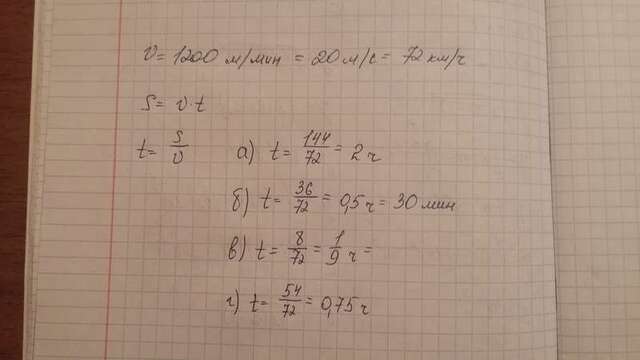 v = 1200 м/мин = 20 м/с = 72 км/ч
S = v·t
t = S/v
а) t = 144/72 = 2 ч
б) t = 36/72 = 0,5 ч = 30 мин
в) t = 8/72 = 1/9 ч =
г) t = 54/72 = 0,75 ч